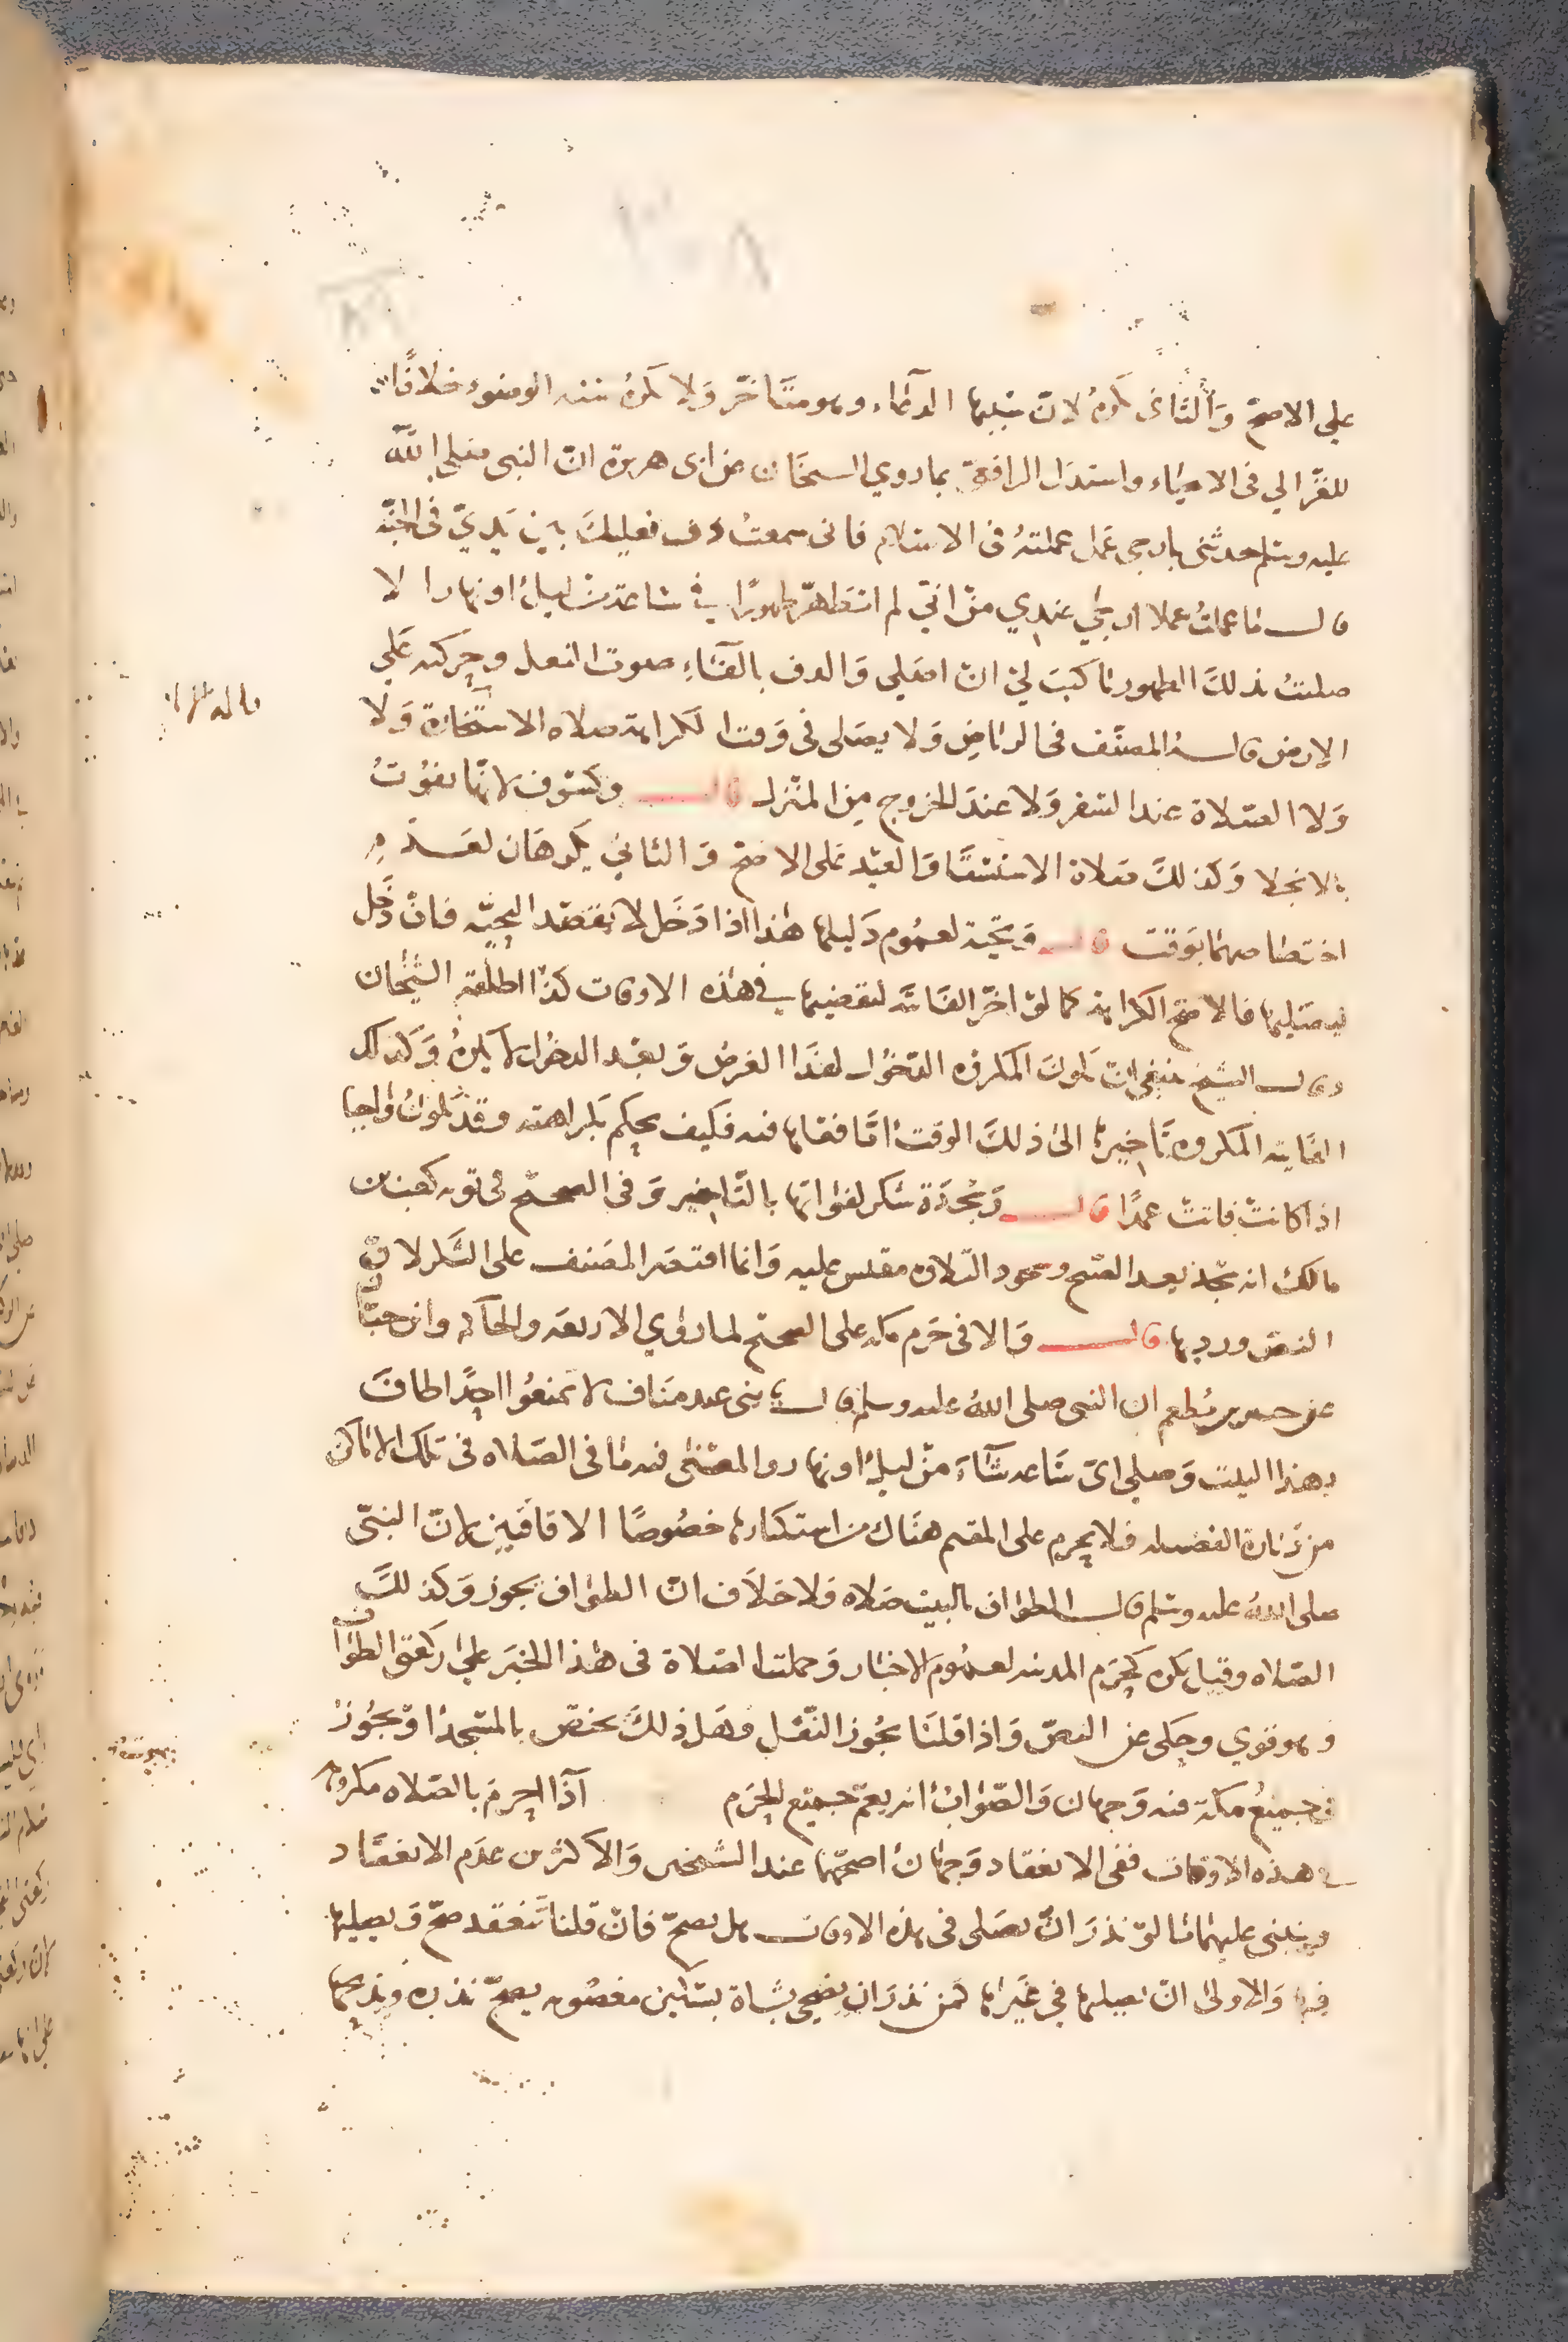 علي الاصح وَالثاني تكره لان سببها الدعاء وهو متَاخّر وَلا تكره سنة الوضوء خلافًا
للغزالي في الاحياء واستدل الرافعي بما روي الشيخان عن ابي هريرة انّ النبي صلي الله
عليه وسلم حدثني بارجي عَمل عملتهُ في الاسلام فاني سمعتُ دف نعليكَ بين يَديّ في الجنّة
قال ما عملتُ عملا ارجي عندي منْ انّي لم اتطهّر طهورًا في ساعة من ليل او نهار الا
صليتُ بذلكَ الطهور ما كتبَ لي انْ اصَلي وَالدف بالفَاء صوت النعل وحركته عَلي
الارض قال المصنّف في الرياض وَلا يصَلي في وَقت الكراهة صلاه الاستخارة وَلا
وَلا الصّلاة عند السّفر وَلا عندَ الخروج من المنزل قال وكسوف لانها تفوُتُ
بالانجلا وَكذلكَ صَلاة الاستسقَا وَالعيْد عَلى الاصح وَالثاني يكرهَان لعَدم
اختصاصهما بوَقت قال وَتحيّة لعمُوم دَليلها هٰذا اذا دَخَل لا بقصْد التحيّة فانْ دَخَل
ليصَليها فالاصح الكراهة كما لوْ اخّر الفَائتة ليقضيها في هٰذه الاوقات كذا اطلقه الشيخان
وقال الشيخ ينبغي انْ يكونَ المكروه الدّخُول لهذا الغرض وَبعْد الدخُول لا يكرهُ وَكذلك
الفَايته المكروه تَاخيرها الىٰ ذلكَ الوقت امَّا فعْلها فيه فكيف يحكم بكراهته وقدْ يكونُ واجبا
اذا كانتْ فاتتْ عمدًا قال وَسجْدَة شكر لفواتها بالتَاخير وَفي الصحيح في توبة كعب بن
مالك انه سجد بعد الصّبح وسجود التلاوه مقيس عليه وَانما اقتصر المصَنف على الشّكر لانّ
النص ورد بها قال وَالا في حَرم مكه على الصحيح لما رَوٰي الاربعَه والحاكم وابن حبّان
عن جبير بن مُطعم ان النبي صلى اللهُ عليه وسلم قال يا بني عبد مَناف لا تمنعُوا احدًا طافَ
بهذا البيت وَصلي ايّ سَاعه شَآءَ منْ ليل او نهار والمعْنٰى فيه مَا في الصَلاه في تلك الاماكن
من زيَادة الفضيله فلا يحرم على المقيم هنَاك من استكثارها خصُوصًا الافاقيين لانّ النبيّ
صلى اللهُ عليه وسَلم قال الطوَاف بالبيت صَلاه وَلا خلاَف انّ الطوَاف يجوز وَكذلكَ
الصّلاه وقيل يكره كحرَم المدينه لعمُوم الاخبار وَحملت الصّلاة في هٰذا الخبَر علي ركعتي الطوَاف
وهو قوي وحكي عن النصّ وَاذا قلنَا يجُوز النّفْل فهَل ذلكَ يختصّ بالمسْجد اوْ يجُوزُ
في جميعُ مكة فيه وَجهان وَالصّوَابُ انه يعمّ جميْع الحرَم اذَا احرمَ بالصّلاه مكروه
في هذه الاوقات ففي الانعقاد وَجهَانْ اصحّهما عند الشيخين وَالاكثرين عدَم الانعقَاد
وينبني عليهمَا مَا لوْ نذرَ انْ يصَلي في هذه الاوقات هل يصحّ فانْ قلنا تَنعَقد صحّ وَيصليها
فيها وَالاولىٰ انْ يصليها في غَيرها كمن نذرَ ان يضحي بشاة بسكين مغصُوب يصحّ نذره ويذبحها